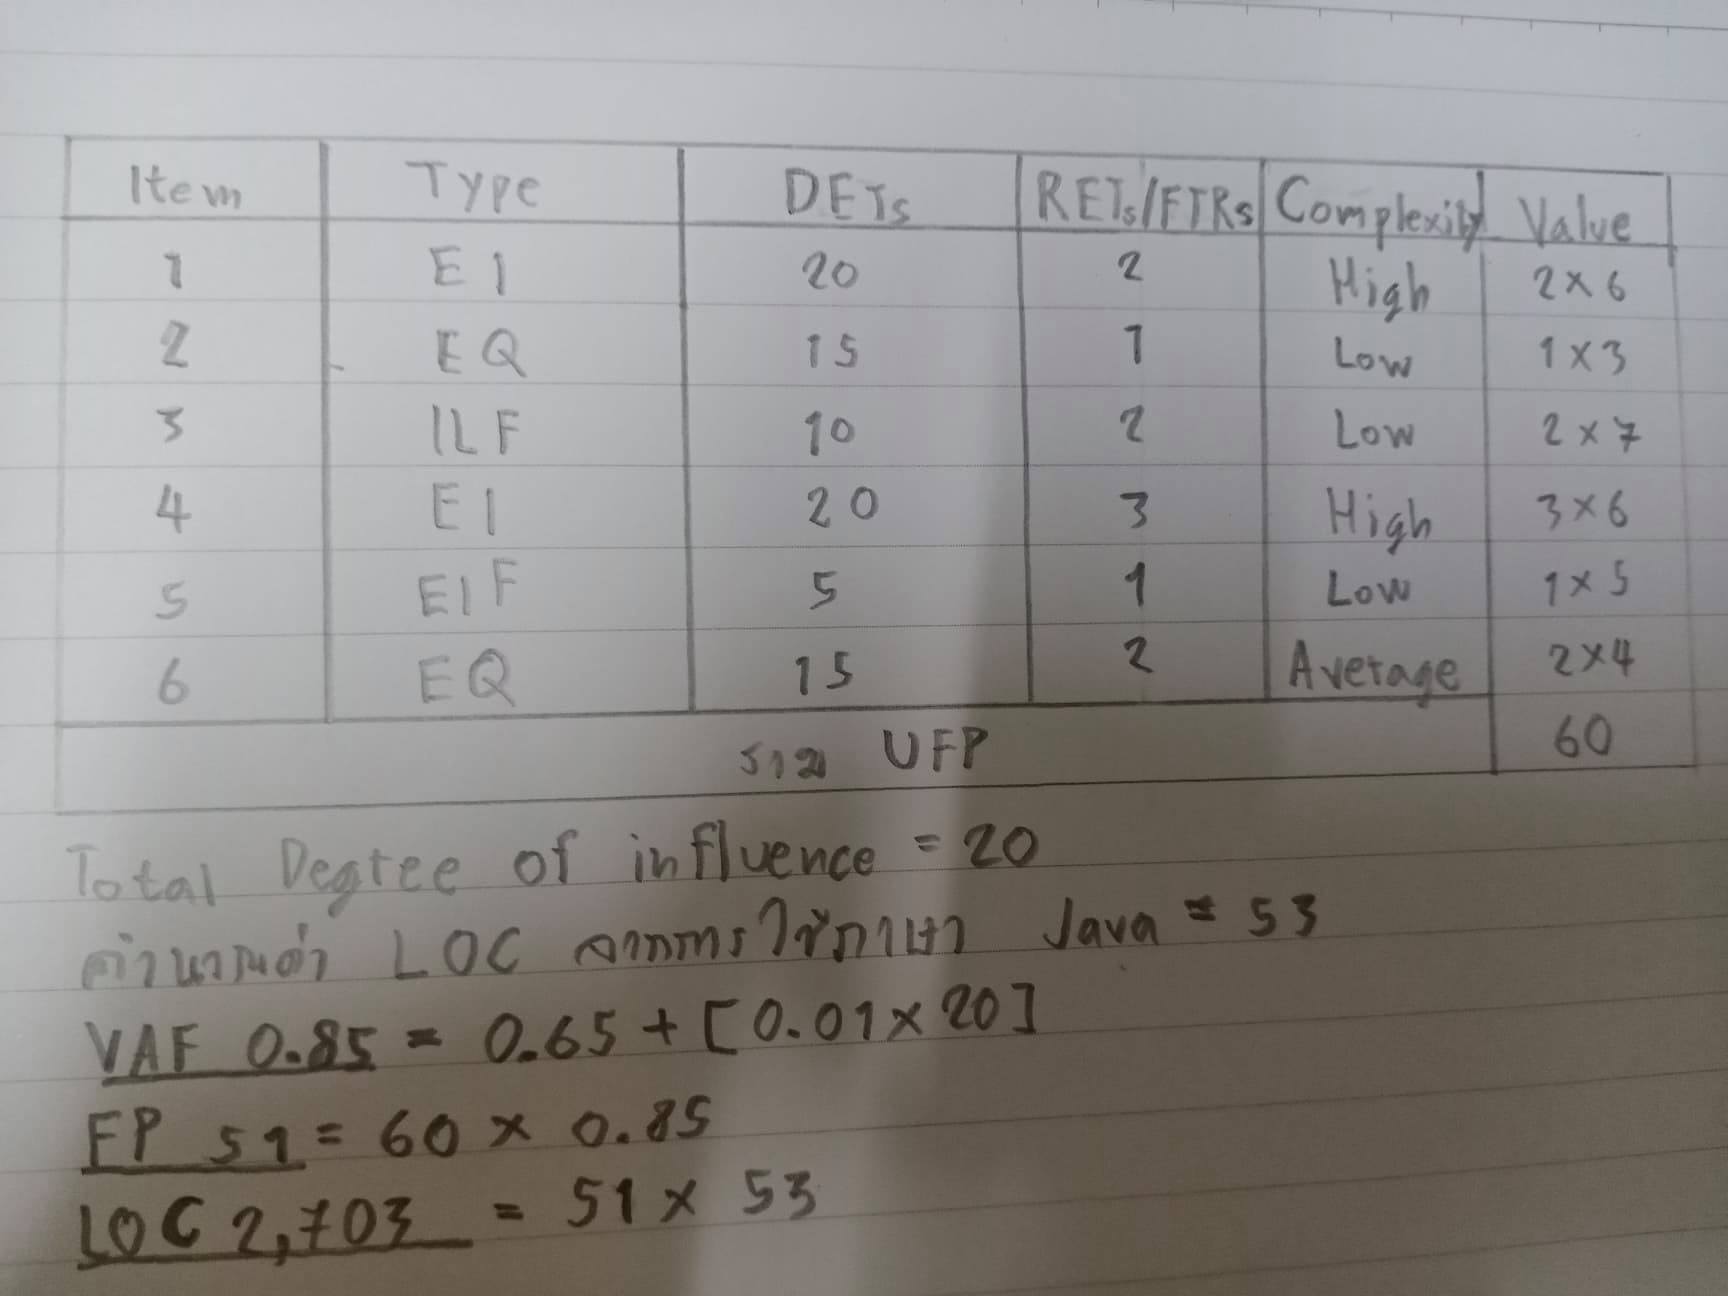 Item Type DETs RETs/FTRs Complexity Value
1 EI 20 2 High 2x6
2 EQ 15 1 Low 1x3
3 ILF 10 2 Low 2x7
4 EI 20 3 High 3x6
5 EIF 5 1 Low 1x5
6 EQ 15 2 Average 2x4
รวม UFP 60
Total Degree of influence = 20
คำนวณค่า LOC จากการใช้ภาษา Java = 53
VAF 0.85 = 0.65 + [0.01x20]
FP 51 = 60 x 0.85
LOC 2,703 = 51 x 53